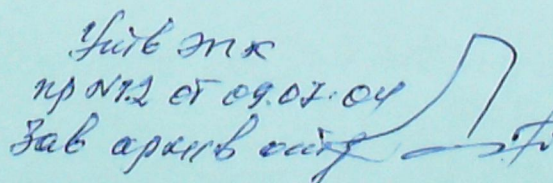 Утв ЭПК
пр №12 от 09.07.04
Зав архив отд